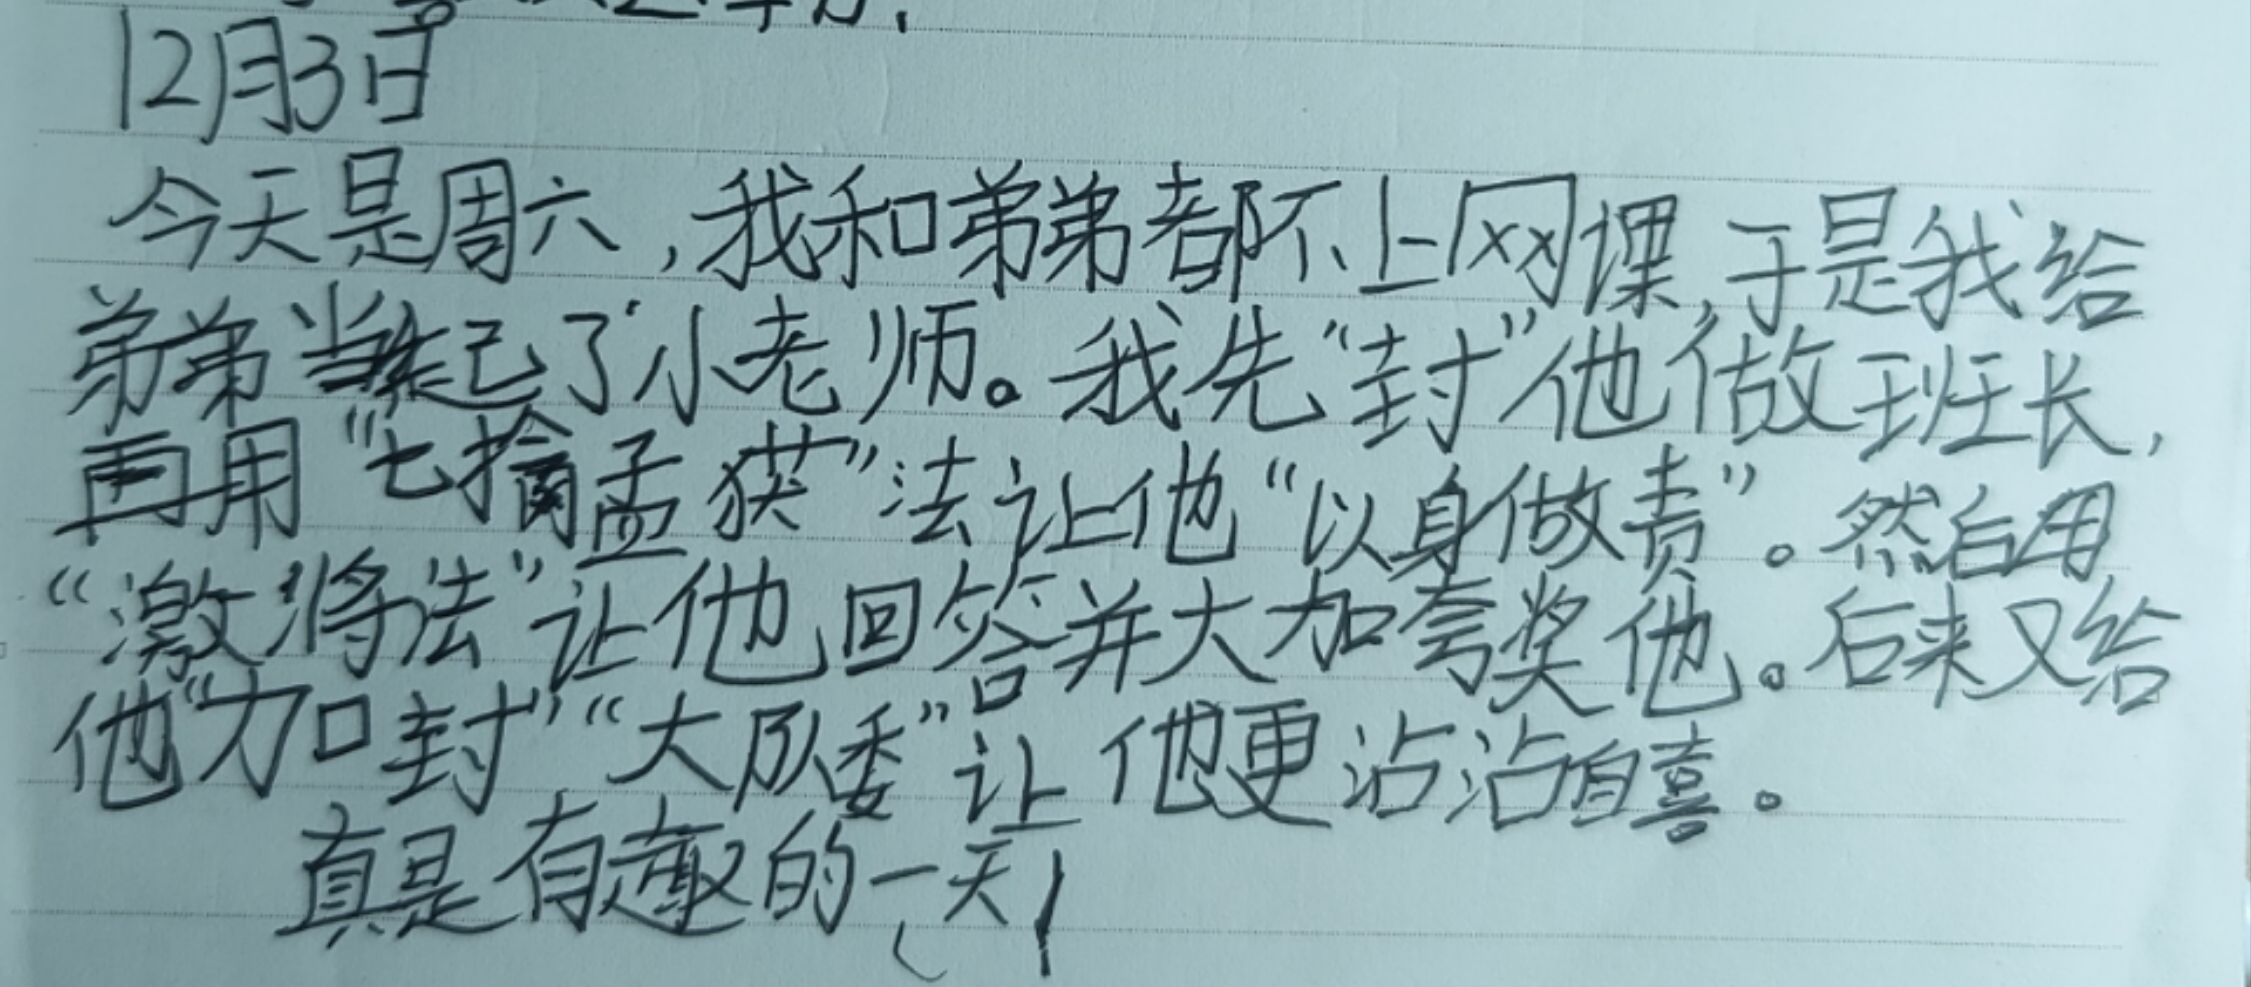 12月3日
今天是周六,我和弟弟都不上网课,于是我给
弟弟当起了小老师。我先“封”他做班长,
再用“七擒孟获”法让他“以身做责”。然后用
“激将法”让他回答并大加夸奖他。后来又给
他“加封”“大队委”让他更沾沾自喜。
真是有趣的一天!